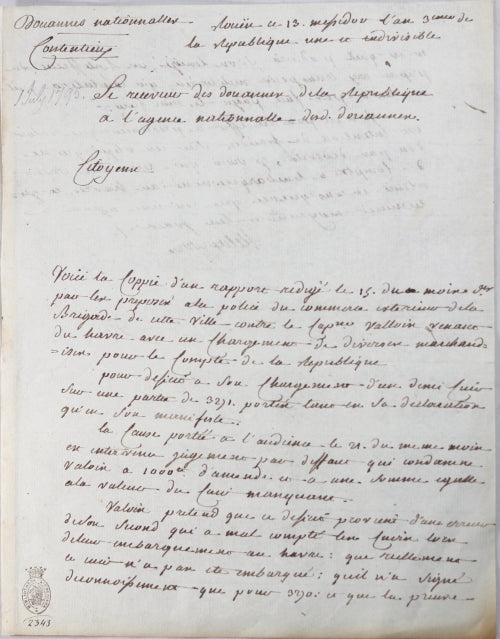 Douannes nationnalles Rouën ce 13. messidor l'an 3eme de
Contentieux la Republique une et indivisible
1 July 1795.
Le receveur des douannes de la Republique
a l'agence nationnalle des d. douannes.
Citoyens
Voicë la Coppie d'un rapport redigé le 15. du mois
par les preposés a la police du commerce exterieur de la
Brigade de cette ville contre le Capne Valloin venant
du havre avec un Chargement de diverses marchand
=ises pour le Compte de la Republique
pour deficit a son Chargement d'un demi Cuir
sur une partie de 3271. portée tant en sa declaration
qu'en son manifeste.
la Cause portée a l'audience le 21. du meme mois
est intervenu jugement par deffaut qui condamne
Valoin a 1000lt d'amende et a une somme egalle
a la valeur du Cuir manquant.
Valoin pretend que ce deficit provient d'une erreur
de son second qui a mal compté les Cuirs lors
de leur embarquement au havre: que reellement
ce cuir n'a pas eté embarqué: qu'il n'a signé
de connoissement que pour 3270: et que la preuve
2343